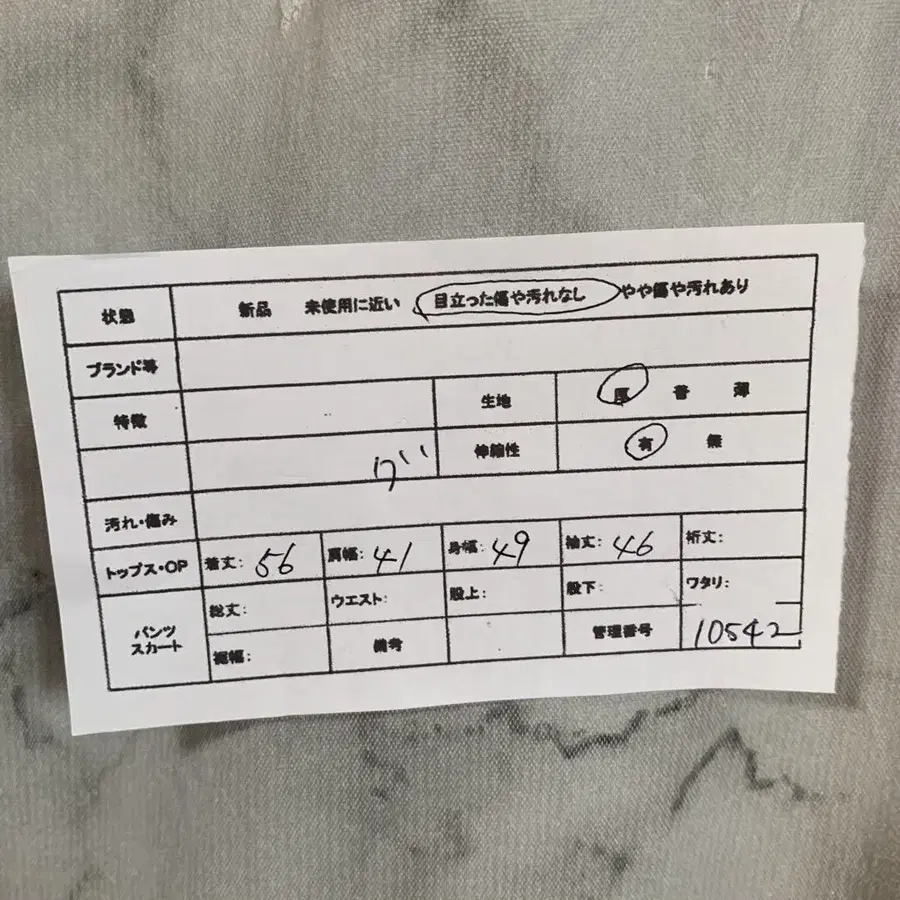 状態 新品 未使用に近い 目立った傷や汚れなし やや傷や汚れあり
ブランド等
特徴 生地 厚 普 薄
伸縮性 有 無
汚れ・傷み
トップス・OP 着丈: 56 肩幅: 41 身幅: 49 袖丈: 46 裄丈:
パンツ スカート 総丈: ウエスト: 股上: 股下: ワタリ:
裾幅: 備考 管理番号 10542